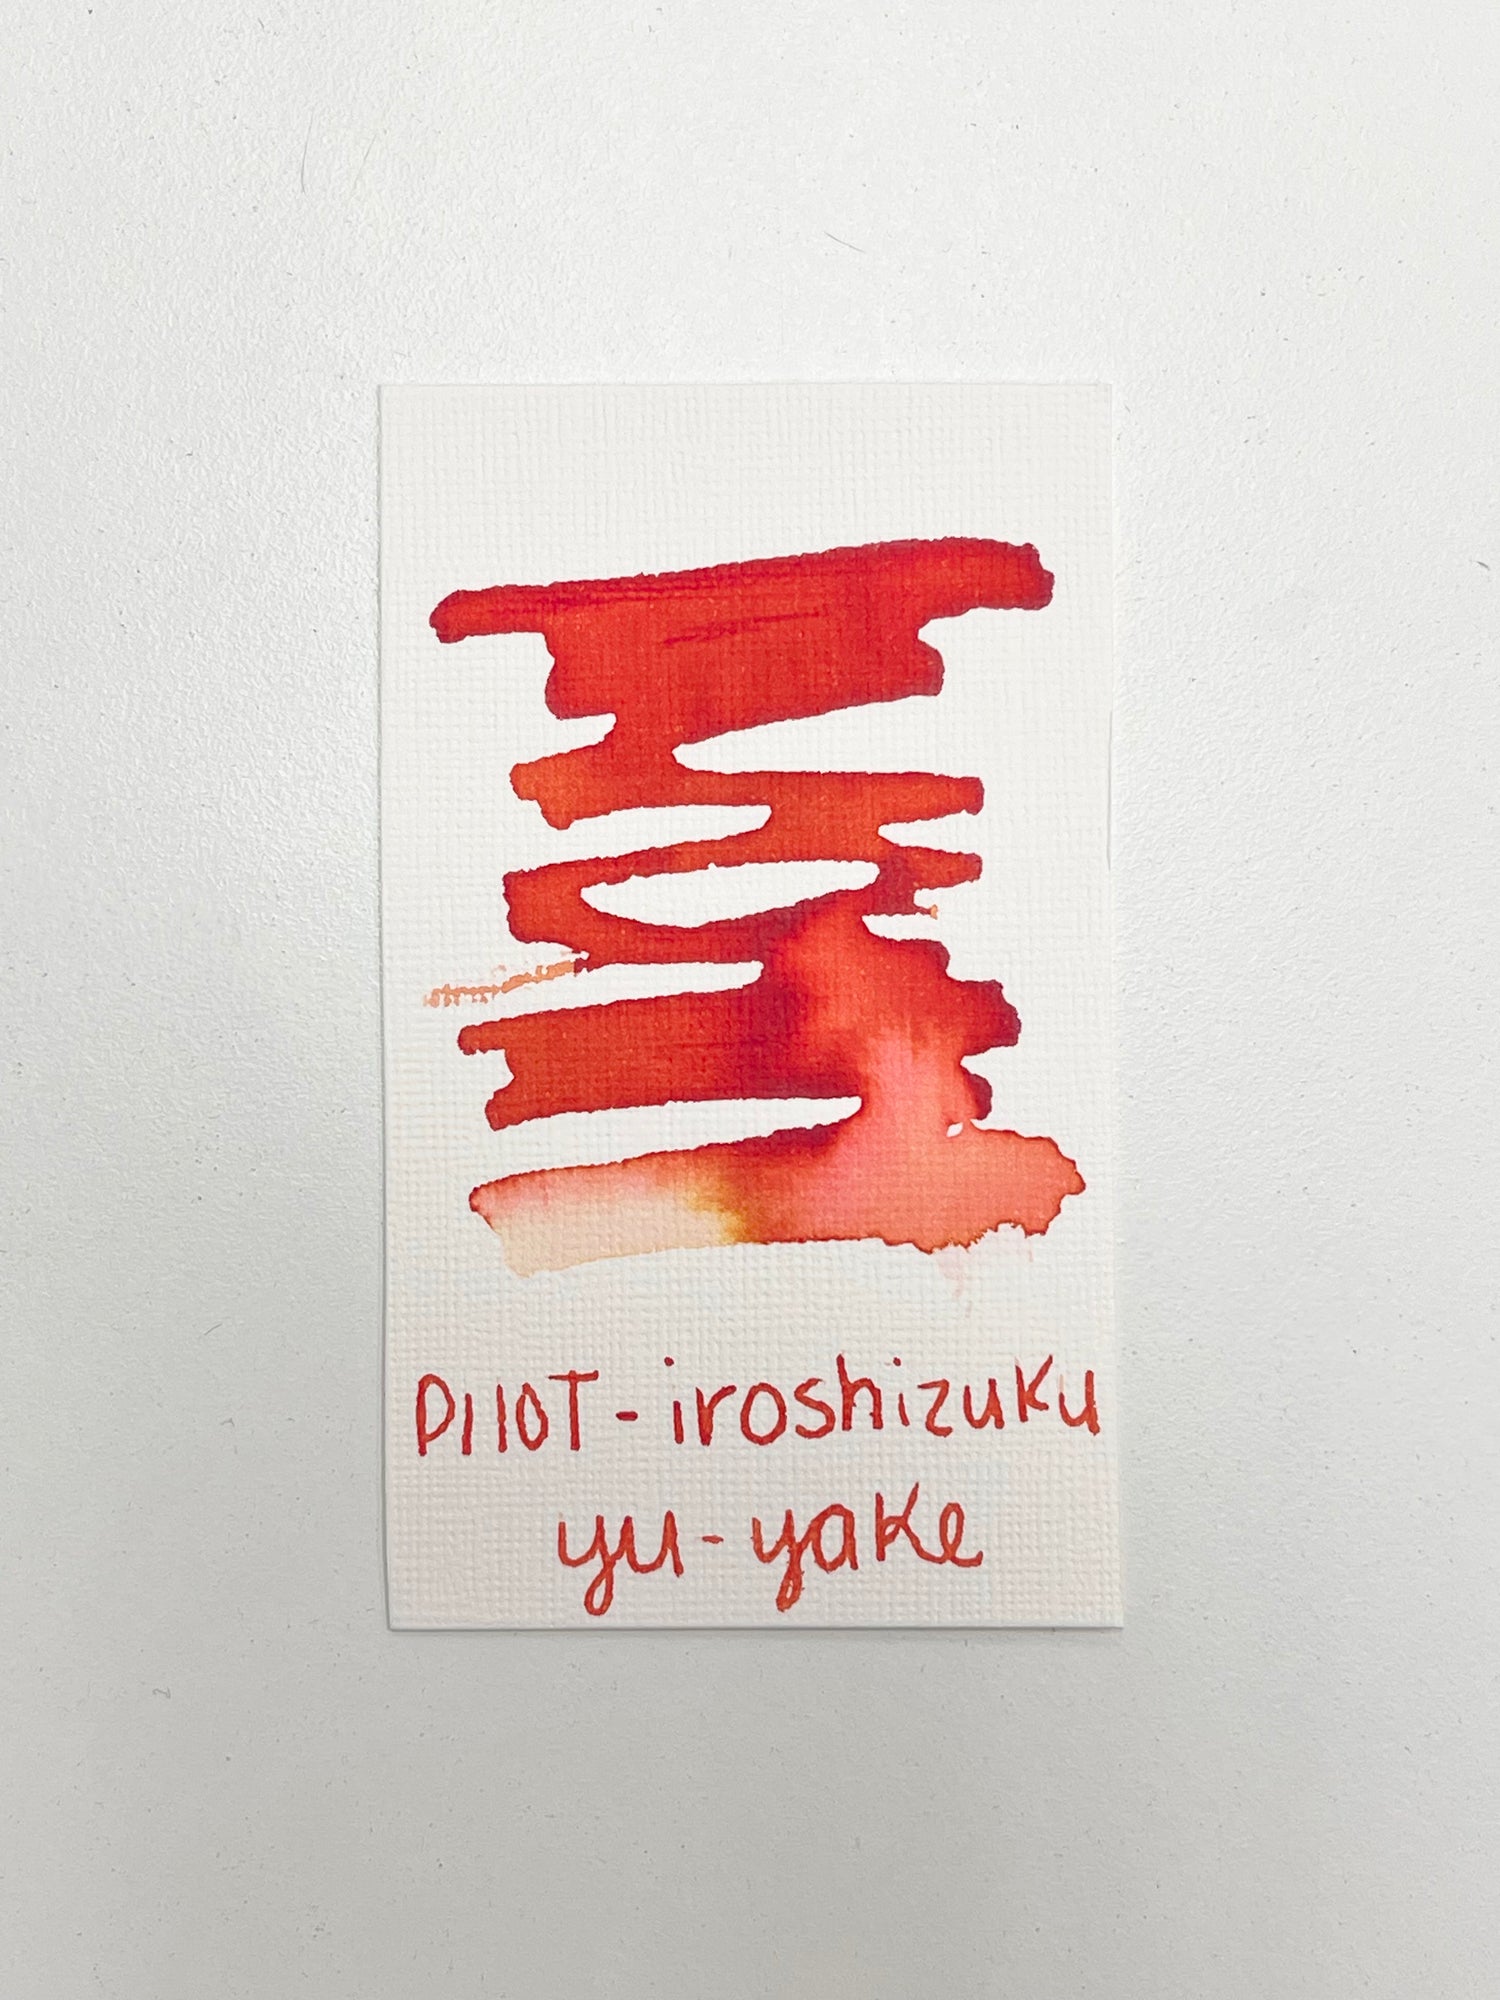 PIlOT-iroshizuku
yu-yake